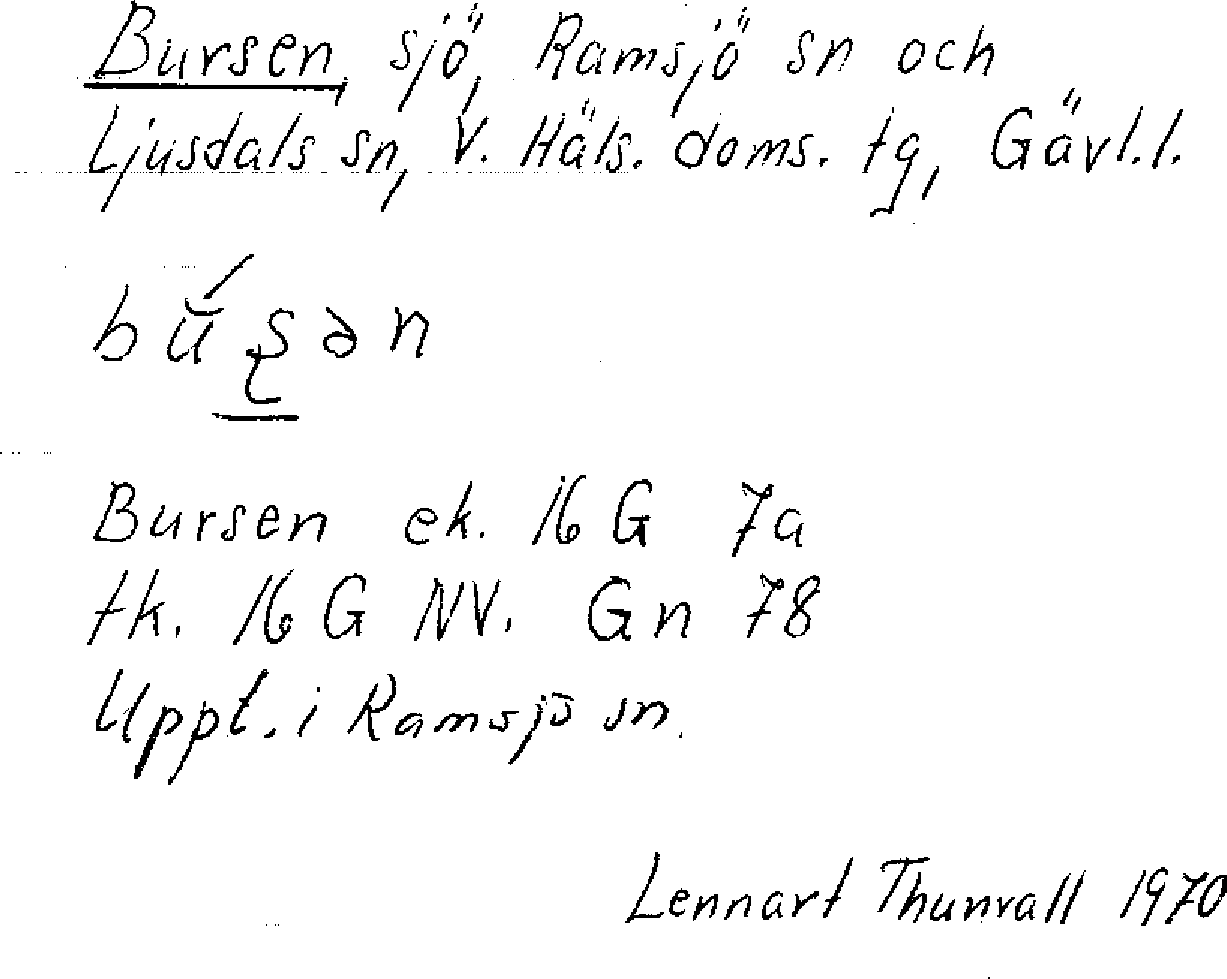 Bursen, sjö, Ramsjö sn och
Ljusdals sn, V. Häls. doms. tg, Gävl.l.
bŭ́ʂən
Bursen ek. 16 G 7a
tk. 16 G NV. Gn 78
Uppt. i Ramsjö sn.
Lennart Thunvall 1970